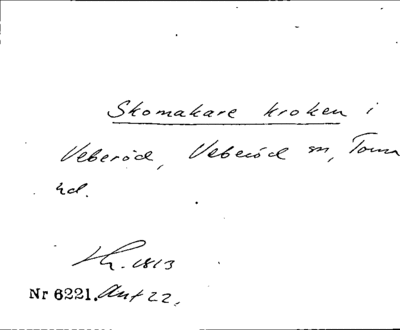 Skomakare kroken i
Veberöd, Veberöd sn, Torna
hd.
1813
Nr 6221.